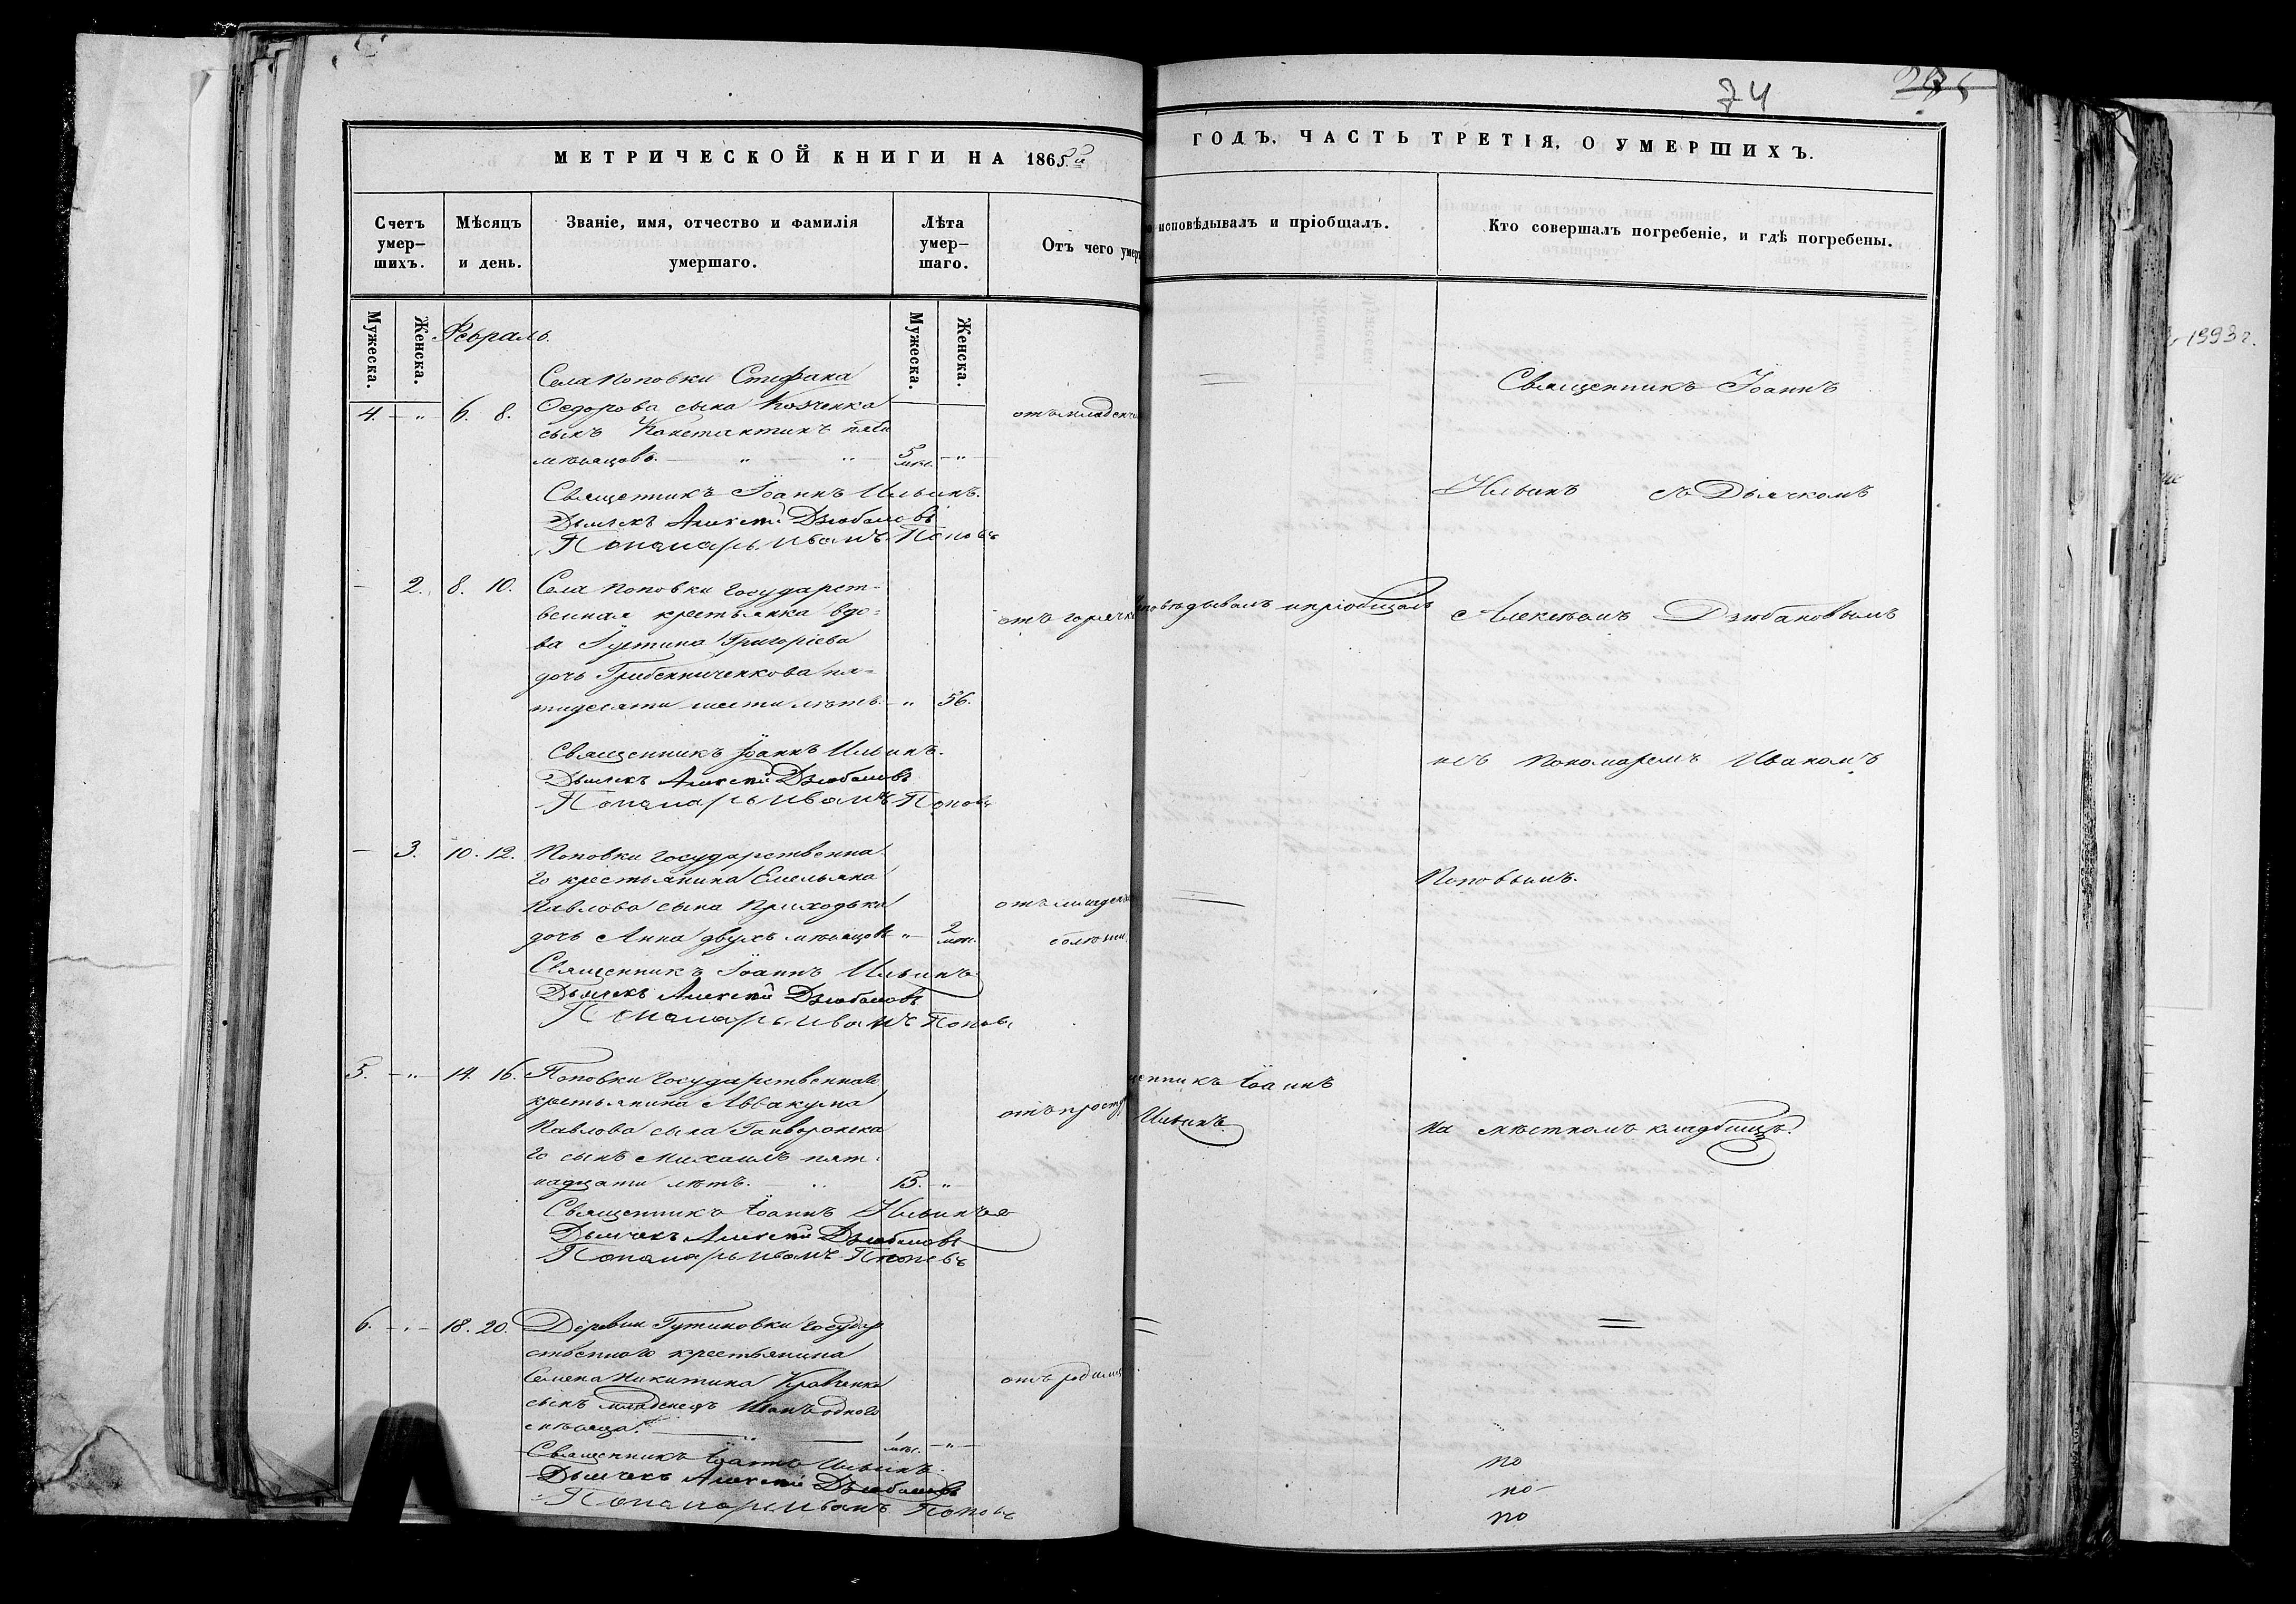 74
МЕТРИЧЕСКОЙ КНИГИ НА 1865й
ГОДЪ, ЧАСТЬ ТРЕТІЯ, О УМЕРШИХЪ.
Счетъ умер- шихъ.
Мѣсяцъ и день.
Званіе, имя, отчество и фамилія умершаго.
Лѣта умер- шаго.
Отъ чего умер
исповѣдывалъ и пріобщалъ.
Кто совершалъ погребеніе, и гдѣ погребены.
Мужеска.
Женска.
Мужеска.
Женска.
Февраль.
Села Поповки Стефана
4. - " - 6. 8. Ѳедорова сына отъ младенч
сынъ Константинъ пяти
мѣсяцовъ. — " — " — 5 мѣс. - "
Священникъ Іоаннъ Ильинъ.
Дьячекъ Алексѣй Дзюбановъ
Пономарь Иванъ Поповъ
- 2. 8. 10. Села Поповки государст-
венная крестьянка вдо-
ва Іустина Григоріева отъ горячк
дочь Гребенниченкова пя-
тидесяти шести лѣтъ. - " 56.
Священникъ Іоаннъ Ильинъ.
Дьячекъ Алексѣй Дзюбановъ
Пономарь Иванъ Поповъ
- 3. 10. 12. Поповки государственна
го крестьянина Емельяна
Павлова сына Приходька отъ младенч
дочь Анна двухъ мѣсяцовъ " 2 мѣс. болѣзни
Священникъ Іоаннъ Ильинъ
Дьячекъ Алексѣй Дзюбановъ
Пономарь Иванъ Поповъ
5. - " - 14. 16. Поповки государственнаго
крестьянина Аввакума
Павлова сына Гайворонска отъ просту
го сынъ Михаилъ пят-
надцати лѣтъ. — " 15. - "
Священникъ Іоаннъ Ильинъ
Дьячекъ Алексѣй Дзюбановъ
Пономарь Иванъ Поповъ
6. - " - 18. 20. Деревни Гутиновки государ
ственнаго крестьянина
Семена Никитина Кравченка отъ родимц
сынъ младенецъ Иванъ одного
мѣсяца. — " — 1 мѣс. - "
Священникъ Іоаннъ Ильинъ.
Дьячекъ Алексѣй Дзюбановъ
Пономарь Иванъ Поповъ
=
исповѣдывалъ и пріобщалъ
=
щенникъ Іоаннъ
Ильинъ.
=
Священникъ Іоаннъ
Ильинъ съ Дьячкомъ
Алексѣемъ Дзюбановымъ
и съ Пономаремъ Иваномъ
Поповымъ.
на мѣстномъ кладбищѣ.
=
по
по
по
1993 г.